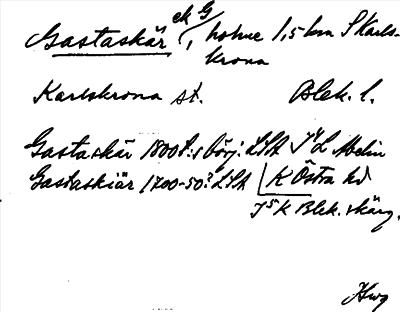 ek G
Gastaskär, holme 1,5 km S Karls-
krona
Karlskrona st. Blek. l.
Gastaskär 1800t:s börj: LSA J4L Melin
Gastaskiär 1700-50? LSA K Östra hd
J5K Blek. skärg.
Hwg